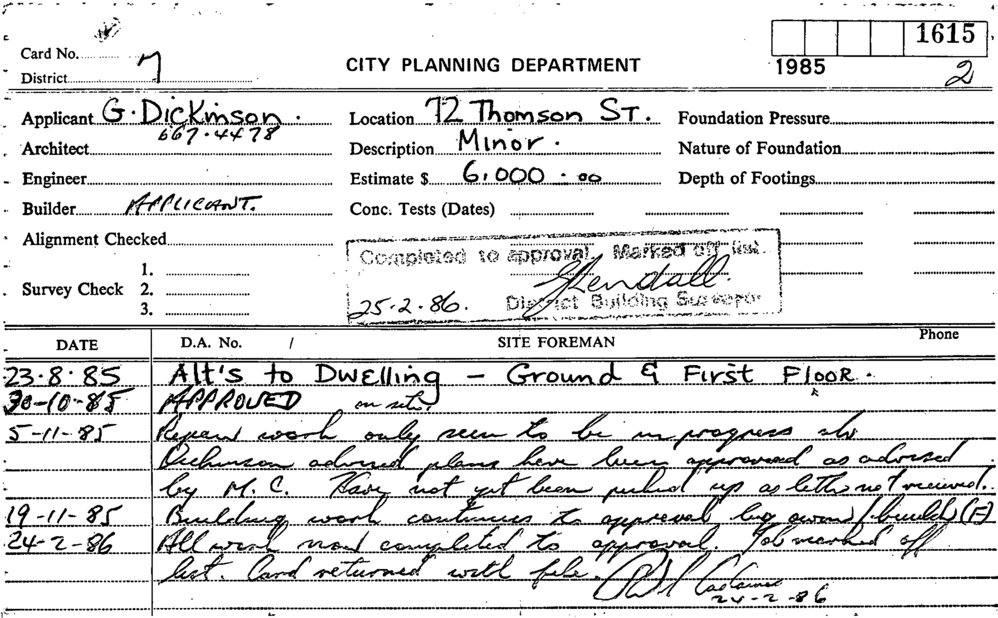 1615
Card No.
CITY PLANNING DEPARTMENT
1985
2
District 7
Applicant G. Dickinson. Location 72 Thomson ST. Foundation Pressure
667.4478
Architect Description Minor. Nature of Foundation
Engineer Estimate $ 6,000.00 Depth of Footings
Builder APPLICANT. Conc. Tests (Dates)
Alignment Checked
Completed to approval. Marked off list.
1.
Survey Check 2.
3.
25.2.86. District Building Surveyor
DATE D.A. No. / SITE FOREMAN Phone
23.8.85 Alt's to Dwelling - Ground & First Floor.
30-10-85 APPROVED on site.
5-11-85 Repair work only seen to be in progress
Dickinson advised plans have been approved as advised
by M.C. Have not yet been picked up as letter not received.
19-11-85 Building work continues to approval by owner/builder (F)
24-2-86 All work now completed to approval. Job marked off
list. Card returned with file.
24-2-86